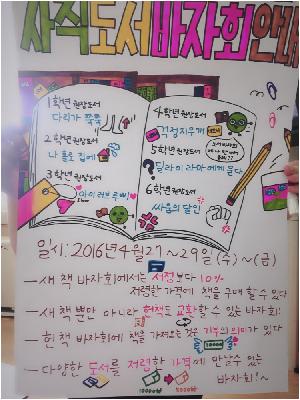 사직도서바자회안내
1학년 권장도서
다리가 쭉쭉
2학년 권장도서
나 홀로 집에
3학년 권장도서
아이러브뿌삐
4학년 권장도서
걱정지우개
5학년 권장도서
달라이 라마에게 묻다
6학년 권장도서
싸움의 달인
일시: 2016년 4월 27~29일 (수)~(금)
- 새 책 바자회에서는 서점보다 10%
저렴한 가격에 책을 구매할 수 있다
- 새 책 뿐만 아니라 헌책도 교환할 수 있는 바자회!
- 헌 책 바자회에 책을 가져오는 것은 기부의 의미가 있다
- 다양한 도서를 저렴한 가격에 만날 수 있는
바자회!~